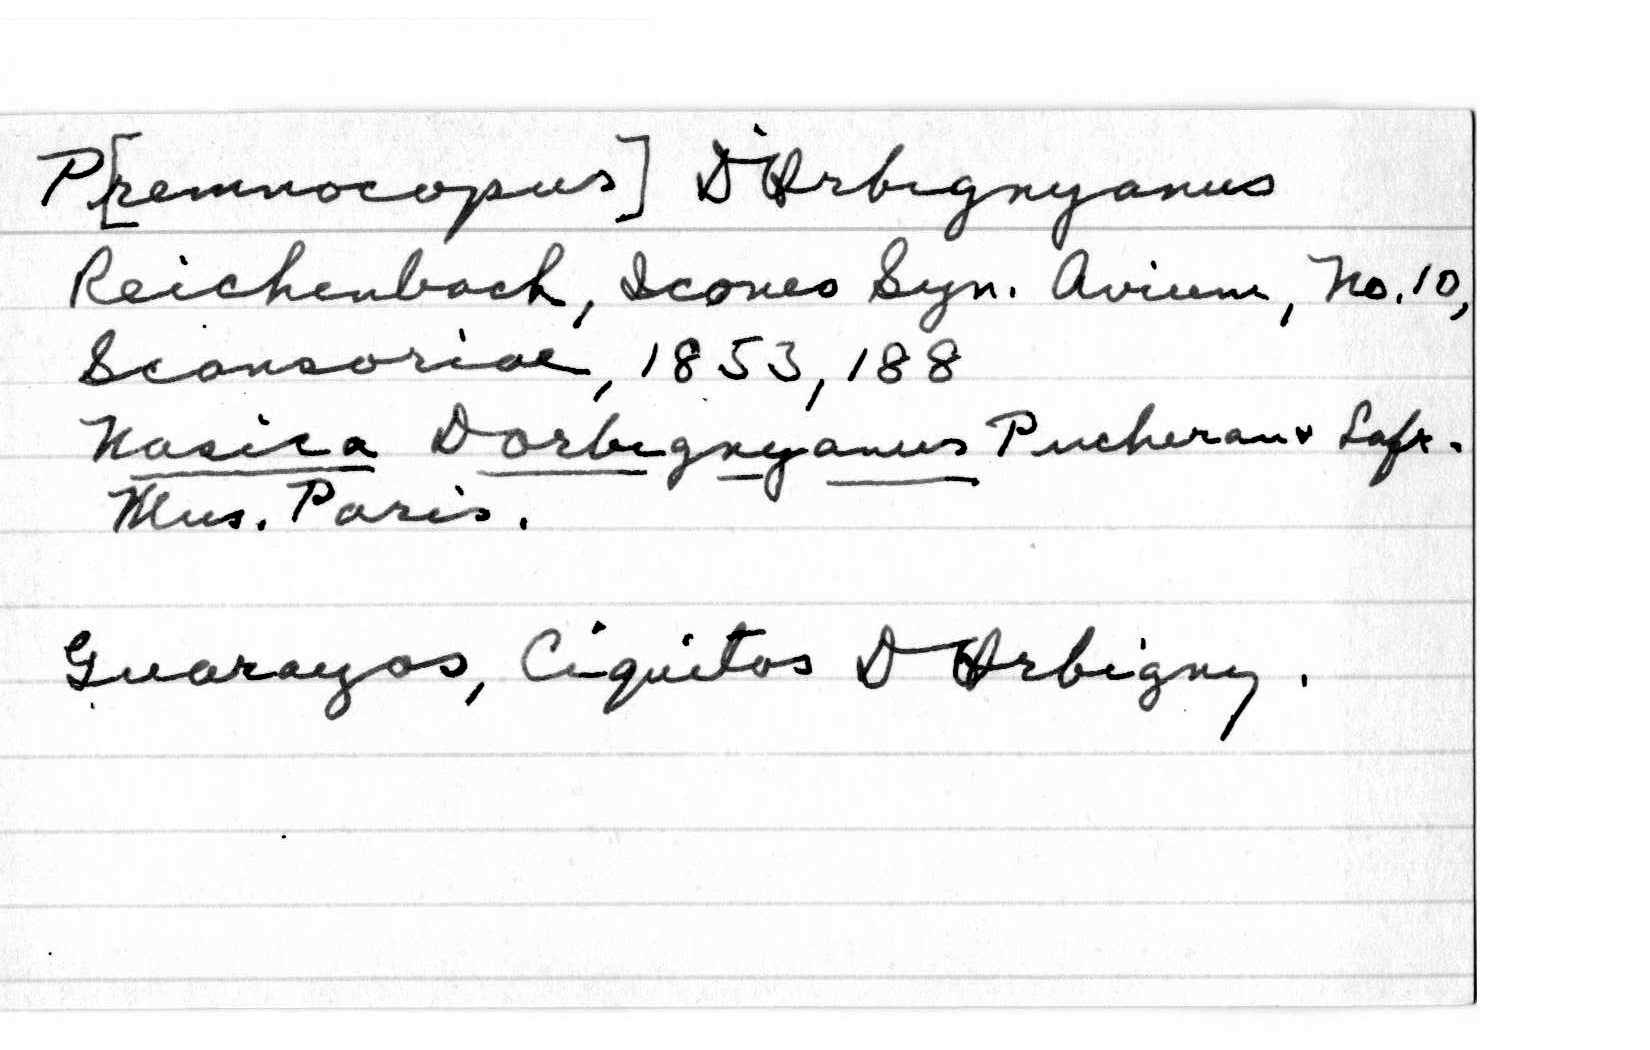 P[remnocopus] D'Orbignyanus
Reichenbach, Icones Syn. Avium, No. 10,
Scansoriae, 1853, 188
Nasica Dorbignyanus Pucheran & Lafr.
Mus. Paris.
Guarayos, Ciquitos D'Orbigny.